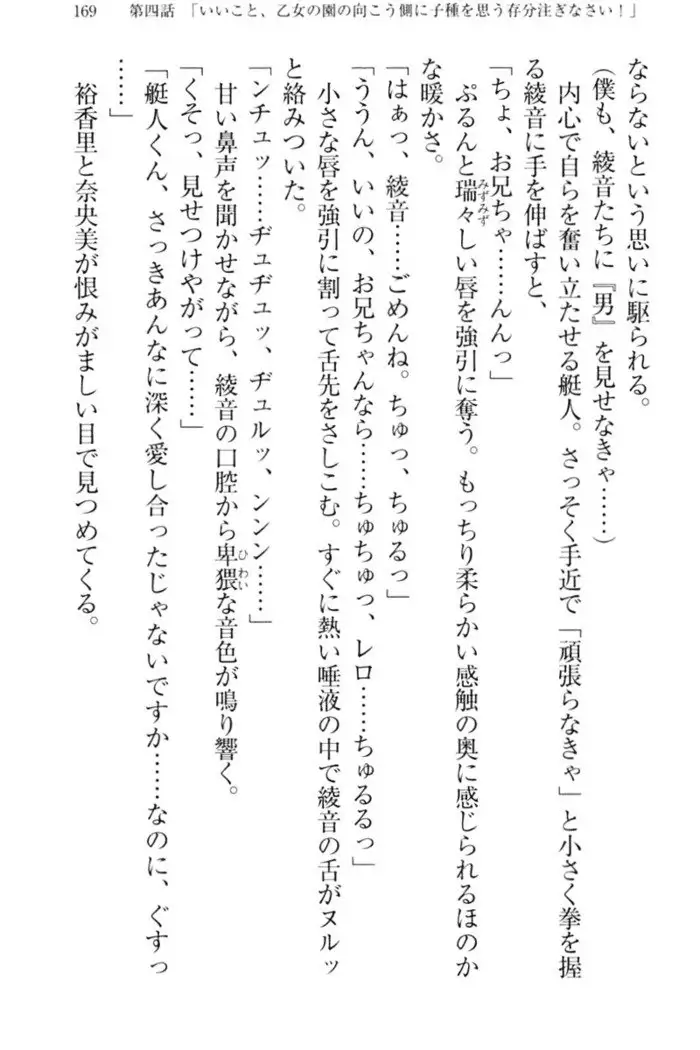 169　第四話　「いいこと、乙女の園の向こう側に子種を思う存分注ぎなさい！」
ならないという思いに駆られる。
（僕も、綾音たちに『男』を見せなきゃ……）
内心で自らを奮い立たせる艇人。さっそく手近で「頑張らなきゃ」と小さく拳を握
る綾音に手を伸ばすと、
「ちょ、お兄ちゃ……んんっ」
ぷるんと瑞々みずみずしい唇を強引に奪う。もっちり柔らかい感触の奥に感じられるほのか
な暖かさ。
「はぁっ、綾音……ごめんね。ちゅっ、ちゅるっ」
「ううん、いいの、お兄ちゃんなら……ちゅちゅっ、レロ……ちゅるるっ」
小さな唇を強引に割って舌先をさしこむ。すぐに熱い唾液の中で綾音の舌がヌルッ
と絡みついた。
「ンチュッ……ヂュヂュッ、ヂュルッ、ンンン……」
甘い鼻声を聞かせながら、綾音の口腔から卑猥ひわいな音色が鳴り響く。
「くそっ、見せつけやがって……」
「艇人くん、さっきあんなに深く愛し合ったじゃないですか……なのに、ぐすっ
……」
裕香里と奈央美が恨みがましい目で見つめてくる。